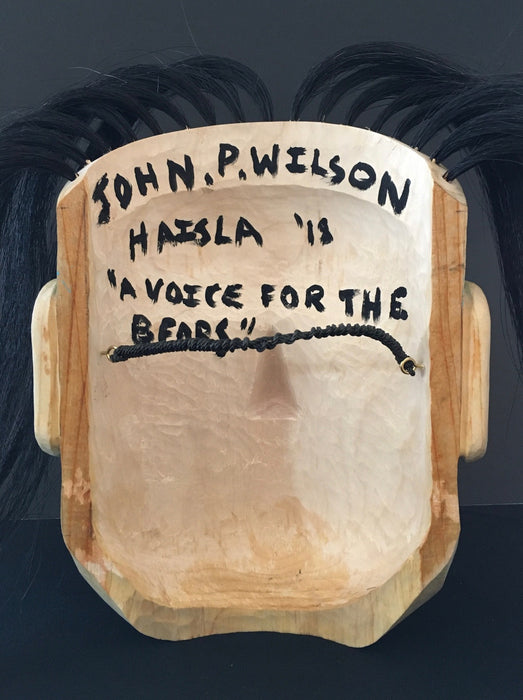 JOHN.P.WILSON
HAISLA '18
"A VOICE FOR THE
BEARS"